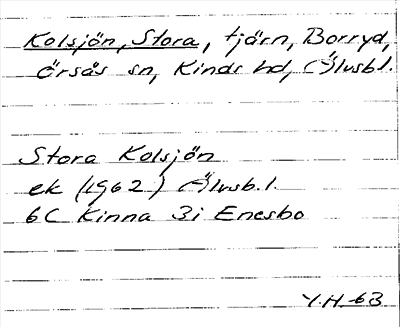 Kolsjön, Stora, tjärn, Borryd,
Örsås sn, Kinds hd, Älvsb.l.
Stora Kolsjön
ek (1962) Älvsb.l.
6C Kinna 3i Enesbo
Y.H-63